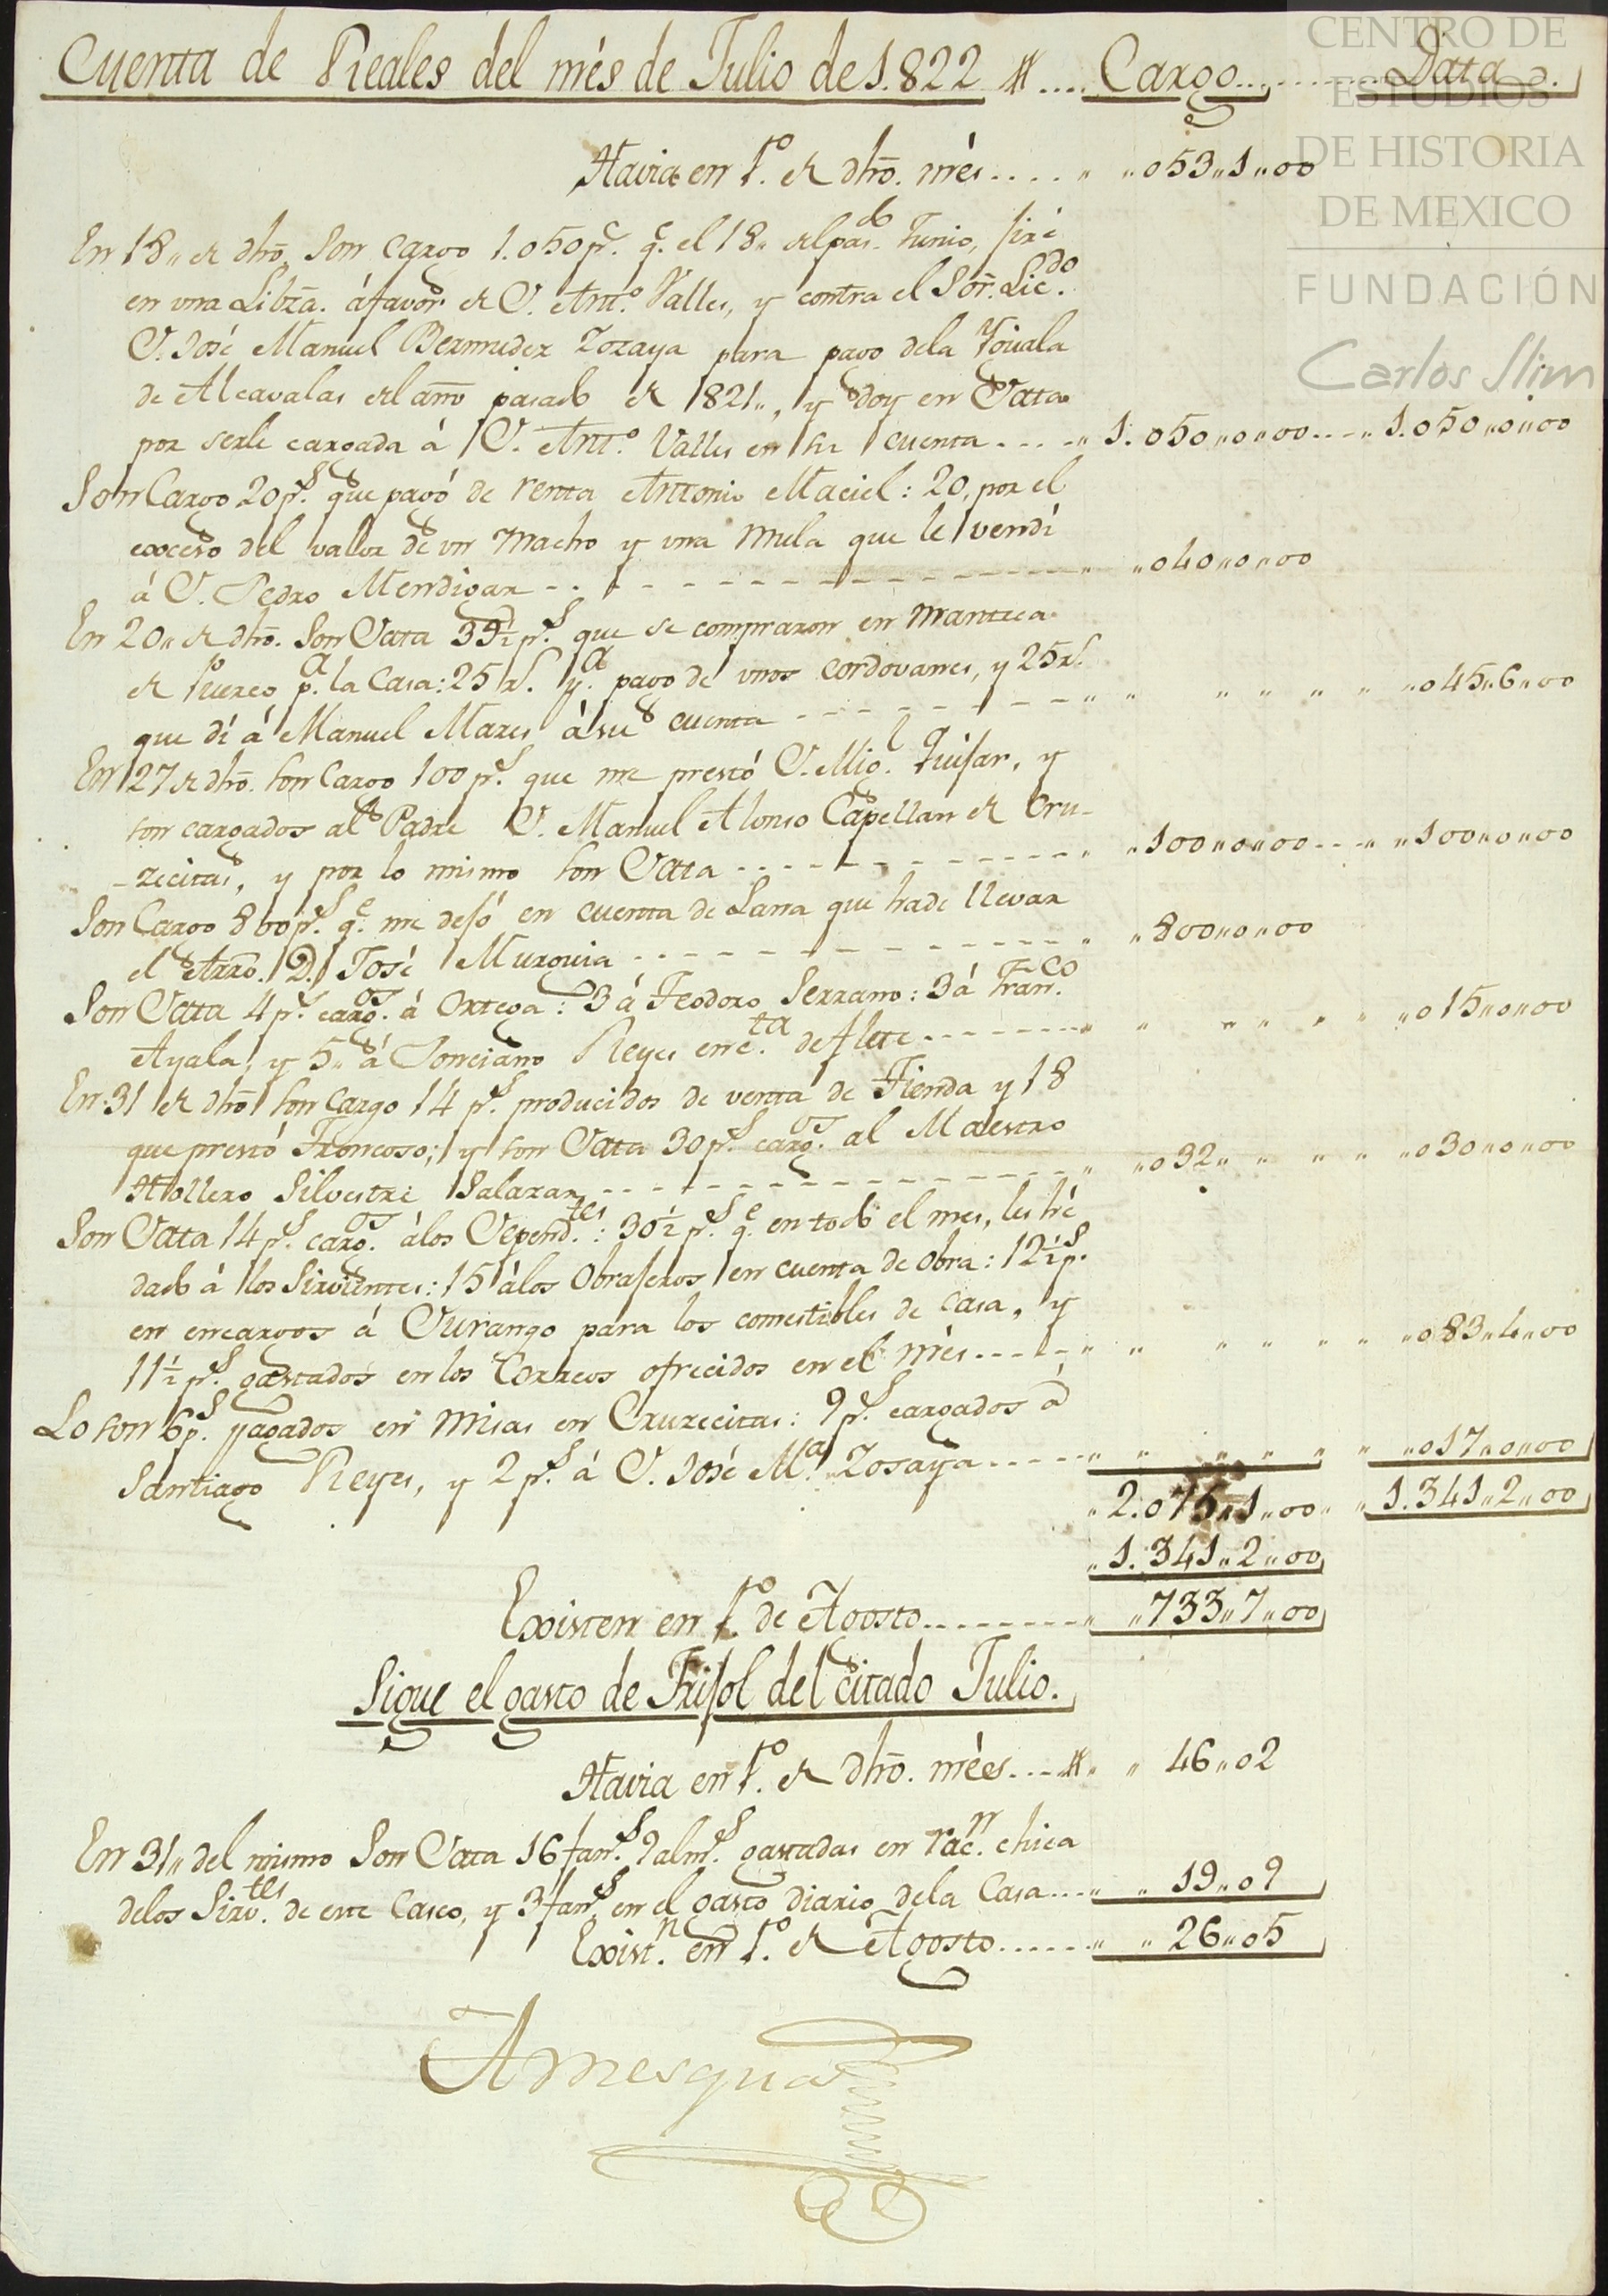 CENTRO DE
ESTUDIOS
DE HISTORIA
DE MEXICO
FUNDACIÓN
Carlos Slim
Cuenta de Reales del més de Julio de 1.822 # .... Cargo ........ Data.
Havia en 1º. de dhō. més .... " " 053 " 1 " 00
En 18 " de dhō. Son Cargo 1.050 pˢ. qᵉ. el 18 " del pasᵈᵒ. Junio, firé
en una Libzā. áfavor de D. Antº. Valles, y contra el Sōr. Licᵈᵒ.
D. José Manuel Bermudez Zozaya para pago dela Yguala
de Alcavalas del año pasado de 1821 ", y doy en Data
por serle cargada á D. Antº. Valles en su cuenta .... " 1.050 " 0 " 00 .... " 1.050 " 0 " 00
Son Cargo 20 pˢ. que pagó de renta Antonio Maciel: 20, por el
exceso del valor de un Macho y una Mula que le vendí
á D. Pedro Mendigar - - - - " " 040 " 0 " 00
En 20 " de dhō. Son Data 39½ pˢ. que se compraron en Manteca
de Puerco pᵃ. la Casa: 25 rˢ. pᵃ. pago de unos cordovanes, y 25 rˢ.
que dí á Manuel Mares á su cuenta - - - - " " " " " " " 045 " 6 " 00
En 27 de dhō. son Cargo 100 pˢ. que me prestó D. Migˡ. Quijar, y
son cargados al Padre D. Manuel Alonso Capellan de Cru-
-zecitas, y por lo mismo son Data - - - - " " 100 " 0 " 00 - - - " " 100 " 0 " 00
Son Cargo 800 pˢ. qᵉ. me dejó en cuenta de Lana que hade llevar
el Arrō. D. José Murguia - - - - " " 800 " 0 " 00
Son Data 4 pˢ. cargᵒˢ. á Ortega: 3 á Teodoro Serrano: 3 á Franᶜᵒ.
Ayala, y 5 " á Ponciano Reyes en cᵗᵃ. de flete - - - - " " " " " " " 015 " 0 " 00
En 31 de dhō. son Cargo 14 pˢ. producidos de venta de Tienda y 18
que prestó Troncoso; y son Data 30 pˢ. cargᵒˢ. al Maestro
Hollero Silvestre Salazar - - - - " " 032 " " " " " 030 " 0 " 00
Son Data 14 pˢ. cargᵒˢ. álos Dependᵗᵉˢ.: 30½ pˢ. qᵉ. en todo el mes, les hé
dado á los Sirvientes: 15 álos Obrajeros en cuenta de obra: 12½ pˢ.
en encargos á Durango para los comestibles de casa, y
11½ pˢ. gastados en los Correos ofrecidos en el més - - - - " " " " " " " 083 " 4 " 00
Lo son 6 pˢ. pagados en Misas en Cruzecitas: 9 pˢ. cargados á
Santiago Reyes, y 2 pˢ. á D. José Mᵃ. Zosaya - - - - " " " " " " " 017 " 0 " 00
" 2.075 " 1 " 00 " " 1.341 " 2 " 00
" 1.341 " 2 " 00
Existen en 1º. de Agosto ........ " " 733 " 7 " 00
Sigue el gasto de Frijol del citado Julio.
Havia en 1º. de dhō. mées ... # " " 46 " 02
En 31 " del mismo Son Data 16 fanˢ. 9 almˢ. gastadas en racⁿ. chica
delos Sirvᵗᵉˢ. de este Casco, y 3 fanˢ. en el gasto diario dela Casa .... " " 19 " 09
Existⁿ. en 1º. de Agosto ...... " " 26 " 05
Amesqua